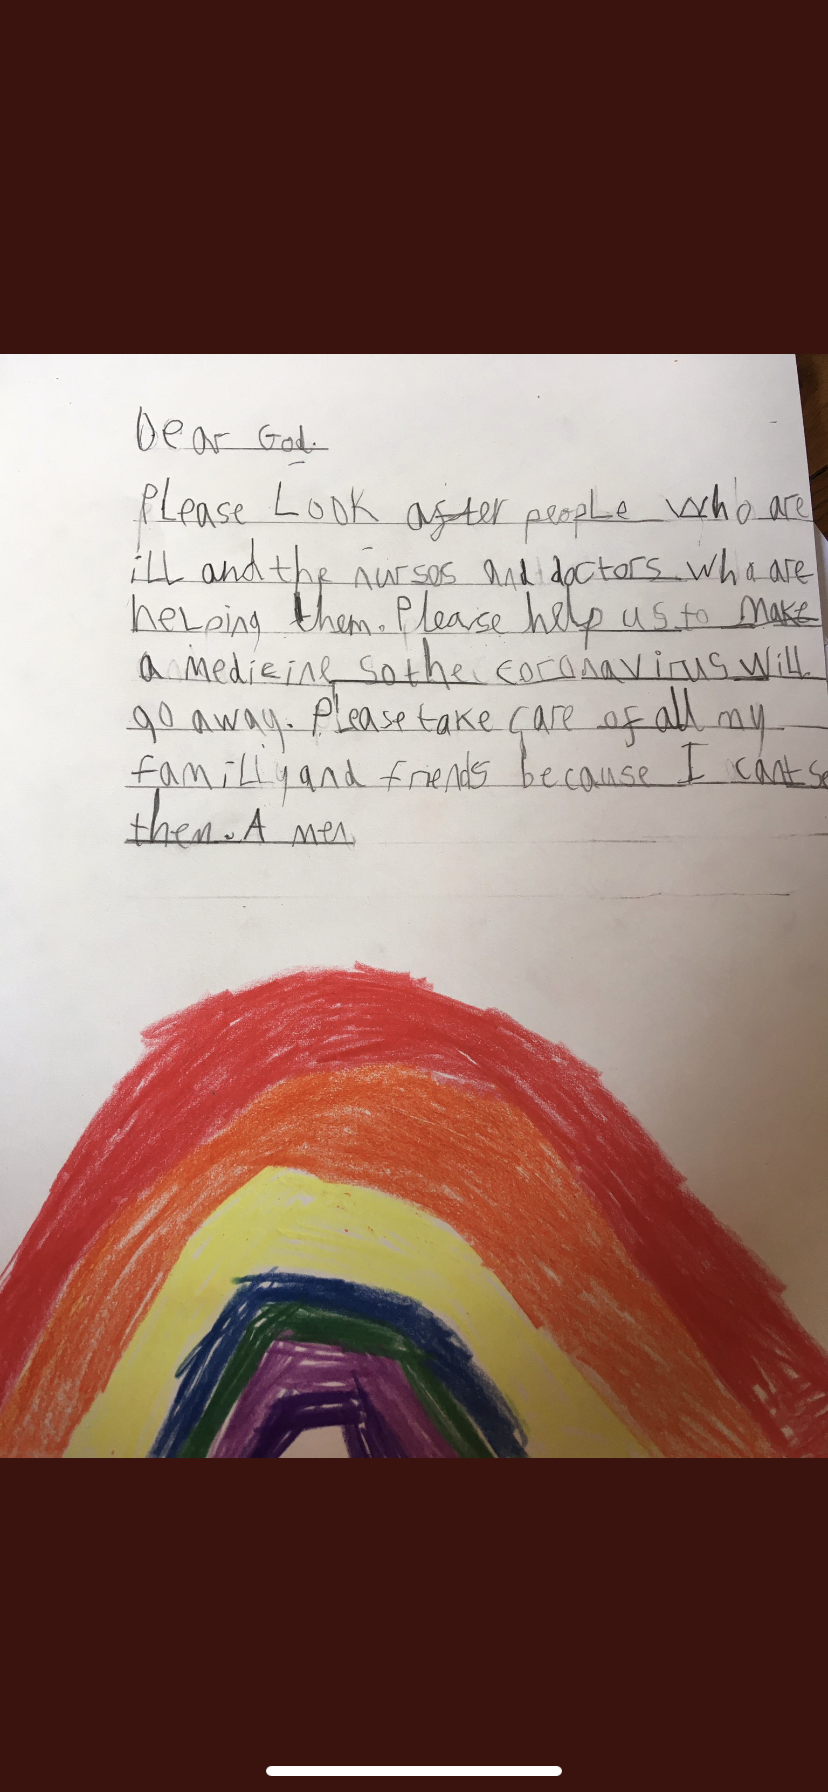 Dear God.
Please Look after people who are
ill and the nurses and doctors who are
helping them. Please help us to make
a medicine so the coronavirus will
go away. Please take care of all my
familly and friends because I cant se
them. A men